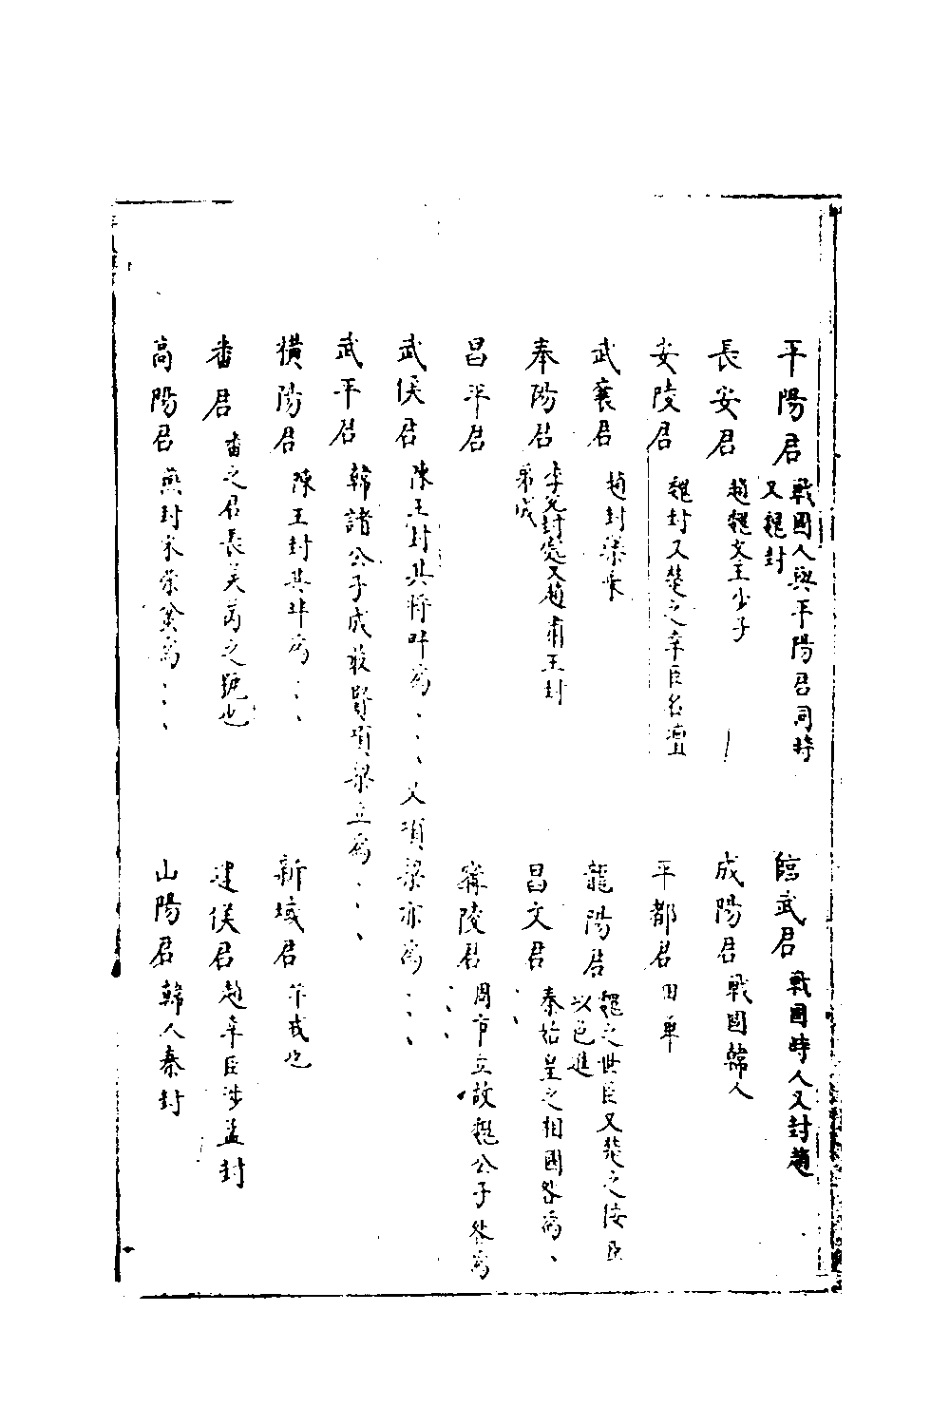 平陽君 戰國人與平陽君同時
又魏封
臨武君 戰國時人又封趙
長安君 趙魏文王少子
成陽君 戰國韓人
安陵君 魏封又楚之幸臣名壇
平都君 田單
武襄君 趙封樂乘
龍陽君 魏之世臣又楚之佞臣
以色進
奉陽君 李兌封處又趙肅王封
弟成
昌文君 秦始皇之相國咎為、
昌平君
寗陵君 周市立故魏公子咎為
、、、
武信君 陳王封其將 為、、、又項梁亦為、、、
武平君 韓諸公子成 賢項梁立為、、、
橫陽君 陳王封其 為、、、
新城君 羋戎也
番君 番之君長吳芮之號也
建信君 趙幸臣涉孟封
高陽君 燕封宋榮蚠為、、、
山陽君 韓人秦封